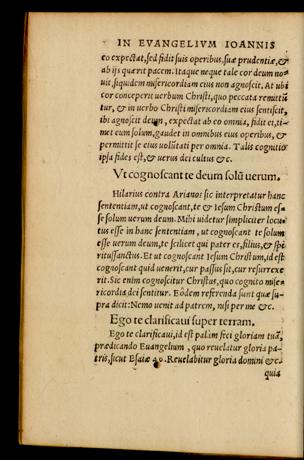 IN EVANGELIVM IOANNIS
eo expectat, sed fidit suis operibus, suæ prudentiæ, &
ab ijs quærit pacem. Itaque neque tale cor deum no-
uit, siquidem misericordiam eius non agnoscit. At ubi
cor conceperit uerbum Christi, quo peccata remittũ
tur, & in uerbo Christi misericordiam eius sentiscit,
ibi agnoscit deum, expectat ab eo omnia, fidit ei, ti-
met eum solum, gaudet in omnibus eius operibus, &
permittit se eius uolũtati per omnia. Talis cognitio
ipsa fides est, & uerus dei cultus &c.
Vt cognoscant te deum solũ uerum.
Hilarius contra Arianos sic interpretatur hanc
sententiam, ut cognoscant, te & Iesum Christum es-
se solum uerum deum. Mihi uidetur simpliciter locu-
tus esse in hanc sententiam, ut cognoscant te solum
esse uerum deum, te scilicet qui pater es, filius, & spi
ritussanctus. Et ut cognoscant Iesum Christum, id est
cognoscant quid uenerit, cur passus sit, cur resurrexe
rit. Sic enim cognoscitur Christus, quo cognito mise-
ricordia dei sentitur. Eòdem referenda sunt quæ su-
pra dicit: Nemo uenit ad patrem, nisi per me &c.
Ego te clarificaui super terram.
Ego te clarificaui, id est palàm feci gloriam tuã,
prædicando Euangelium, quo reuelatur gloria pa-
tris, sicut Esaiæ 40. Reuelabitur gloria domini &c.
quia